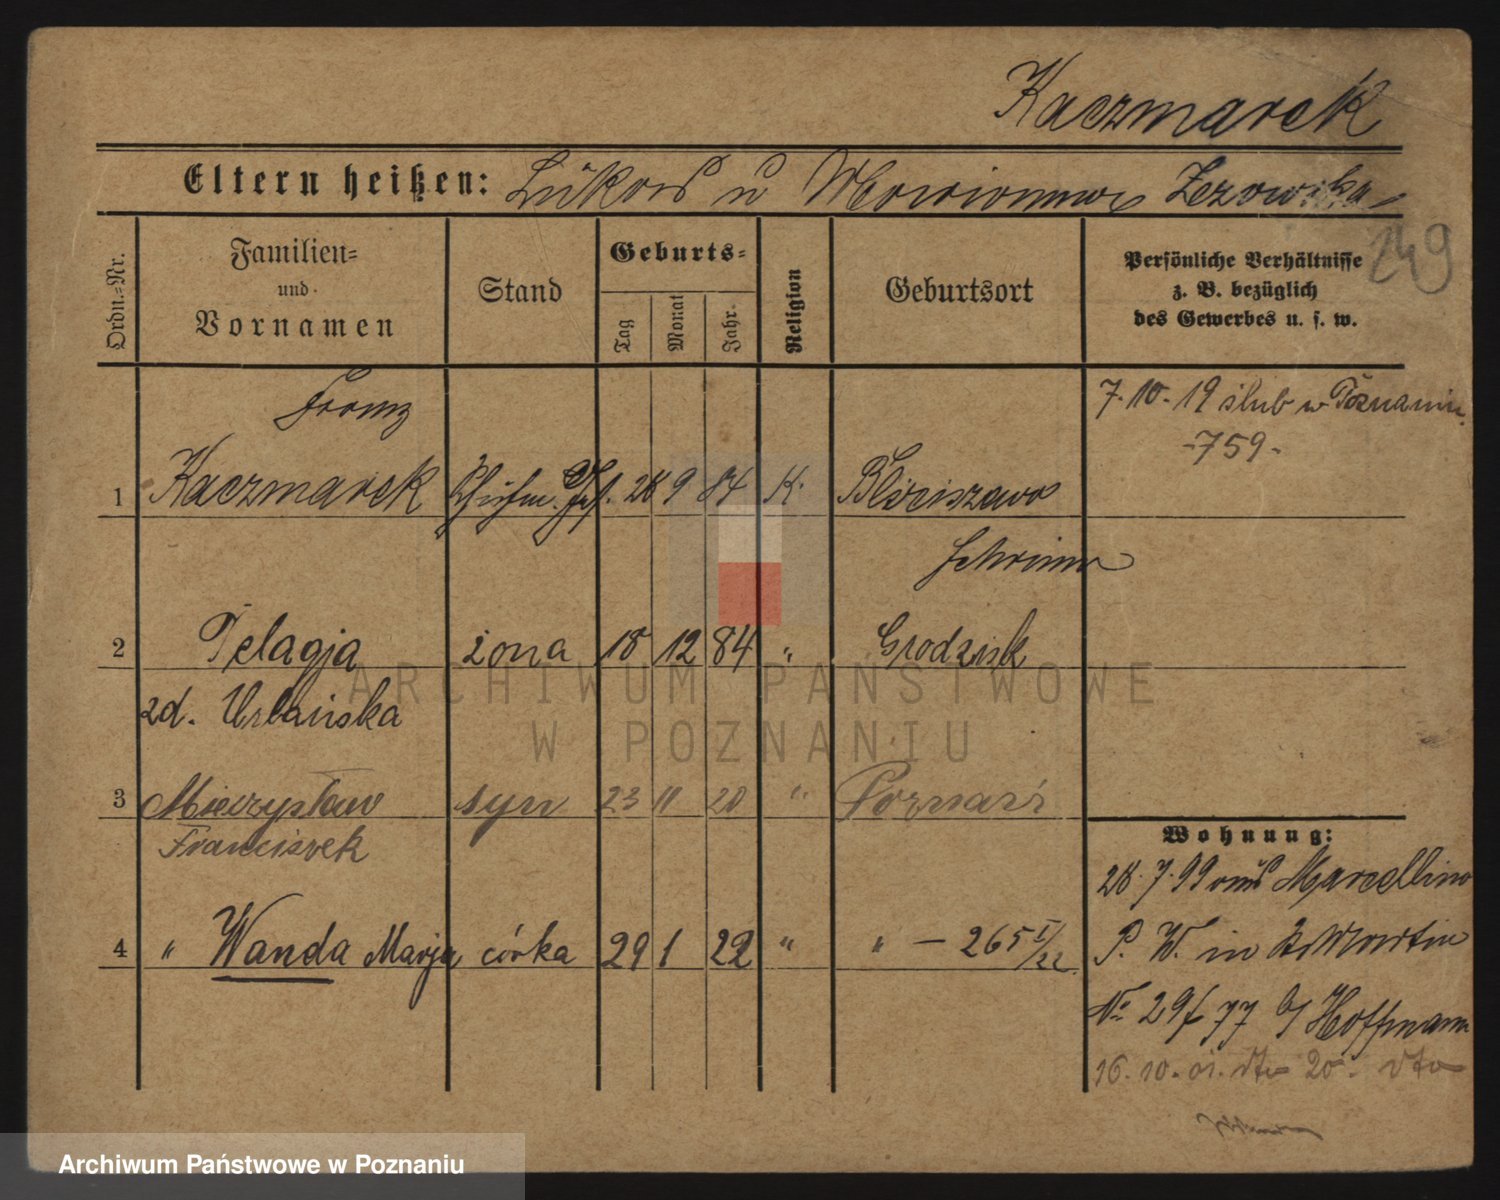 Kaczmarek
Eltern heißen: Lukas u Marianna
149
Ordn.-Nr.
Familien-
und
Vornamen
Stand
Geburts-
Tag
Monat
Jahr.
Religion
Geburtsort
Persönliche Verhältnisse
z. B. bezüglich
des Gewerbes u. s. w.
Franz
7.10.19 ślub w Poznaniu
-759-
1 Kaczmarek 28 9 84 K.
Schrimm
2 Pelagja żona 18 12 84 " Grodzisk
zd. Urbańska
3 Mieczysław syn 23 11 20 " Poznań
Franciszek
4 " Wanda Marja córka 29 1 22 " " — 265 I/22
Wohnung:
28.7.99 aus Marcellino
P. W. in St Martin
No 29/ 77 b/ Hoffmann
16.10.01. dto 20. dto
ARCHIWUM PAŃSTWOWE
W POZNANIU
Archiwum Państwowe w Poznaniu